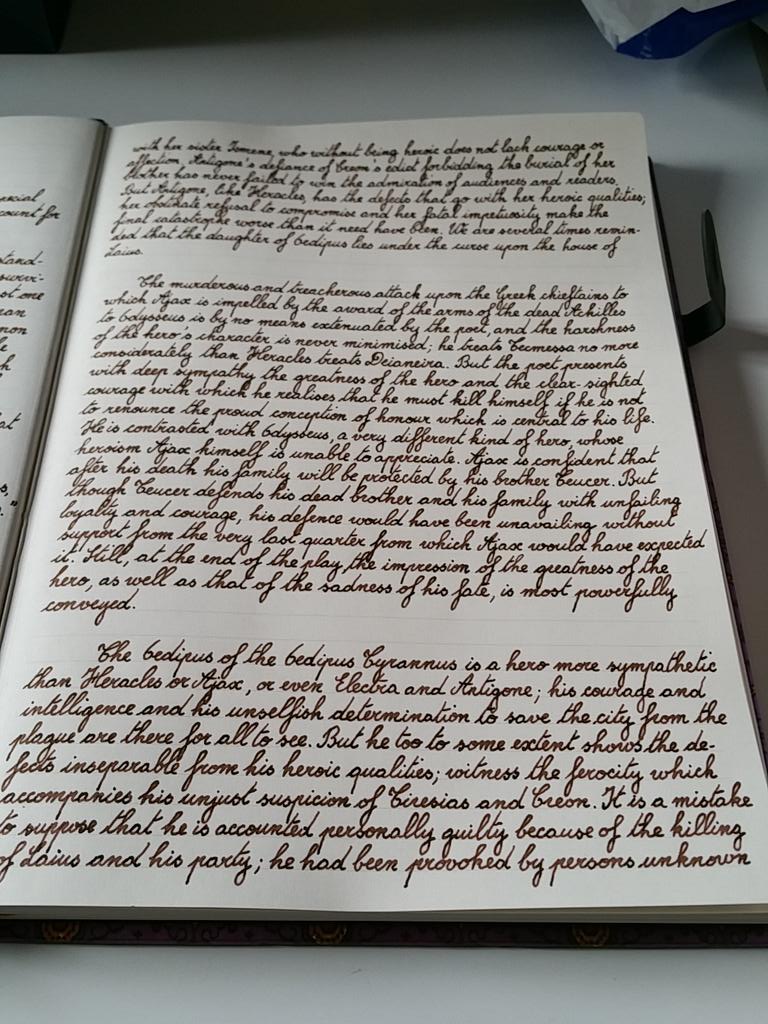 ecial
count for
stand-
survi-
st one
ean
mon
h
at
s,
."
with her sister Ismene, who without being heroic does not lack courage or
affection, Antigone's defiance of Creon's edict forbidding the burial of her
brother has never failed to win the admiration of audiences and readers.
But Antigone, like Heracles, has the defects that go with her heroic qualities;
her obstinate refusal to compromise and her fatal impetuosity make the
final catastrophe worse than it need have been. We are several times remin-
ded that the daughter of Oedipus lies under the curse upon the house of
Laius.
The murderous and treacherous attack upon the Greek chieftains to
which Ajax is impelled by the award of the arms of the dead Achilles
to Odysseus is by no means extenuated by the poet, and the harshness
of the hero's character is never minimised; he treats Tecmessa no more
considerately than Heracles treats Deianeira. But the poet presents
with deep sympathy the greatness of the hero and the clear-sighted
courage with which he realises that he must kill himself if he is not
to renounce the proud conception of honour which is central to his life.
He is contrasted with Odysseus, a very different kind of hero, whose
heroism Ajax himself is unable to appreciate. Ajax is confident that
after his death his family will be protected by his brother Teucer. But
though Teucer defends his dead brother and his family with unfailing
loyalty and courage, his defence would have been unavailing without
support from the very last quarter from which Ajax would have expected
it. Still, at the end of the play, the impression of the greatness of the
hero, as well as that of the sadness of his fate, is most powerfully
conveyed.
The Oedipus of the Oedipus Tyrannus is a hero more sympathetic
than Heracles or Ajax, or even Electra and Antigone; his courage and
intelligence and his unselfish determination to save the city from the
plague are there for all to see. But he too to some extent shows the de-
fects inseparable from his heroic qualities; witness the ferocity which
accompanies his unjust suspicion of Tiresias and Creon. It is a mistake
to suppose that he is accounted personally guilty because of the killing
of Laius and his party; he had been provoked by persons unknown